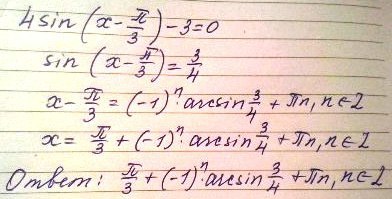 4sin(x-π/3)-3=0
sin(x-π/3)=3/4
x-π/3=(-1)ⁿ·arcsin 3/4+πn, n∈Z
x=π/3+(-1)ⁿ·arcsin 3/4+πn, n∈Z
Ответ: π/3+(-1)ⁿarcsin 3/4+πn, n∈Z